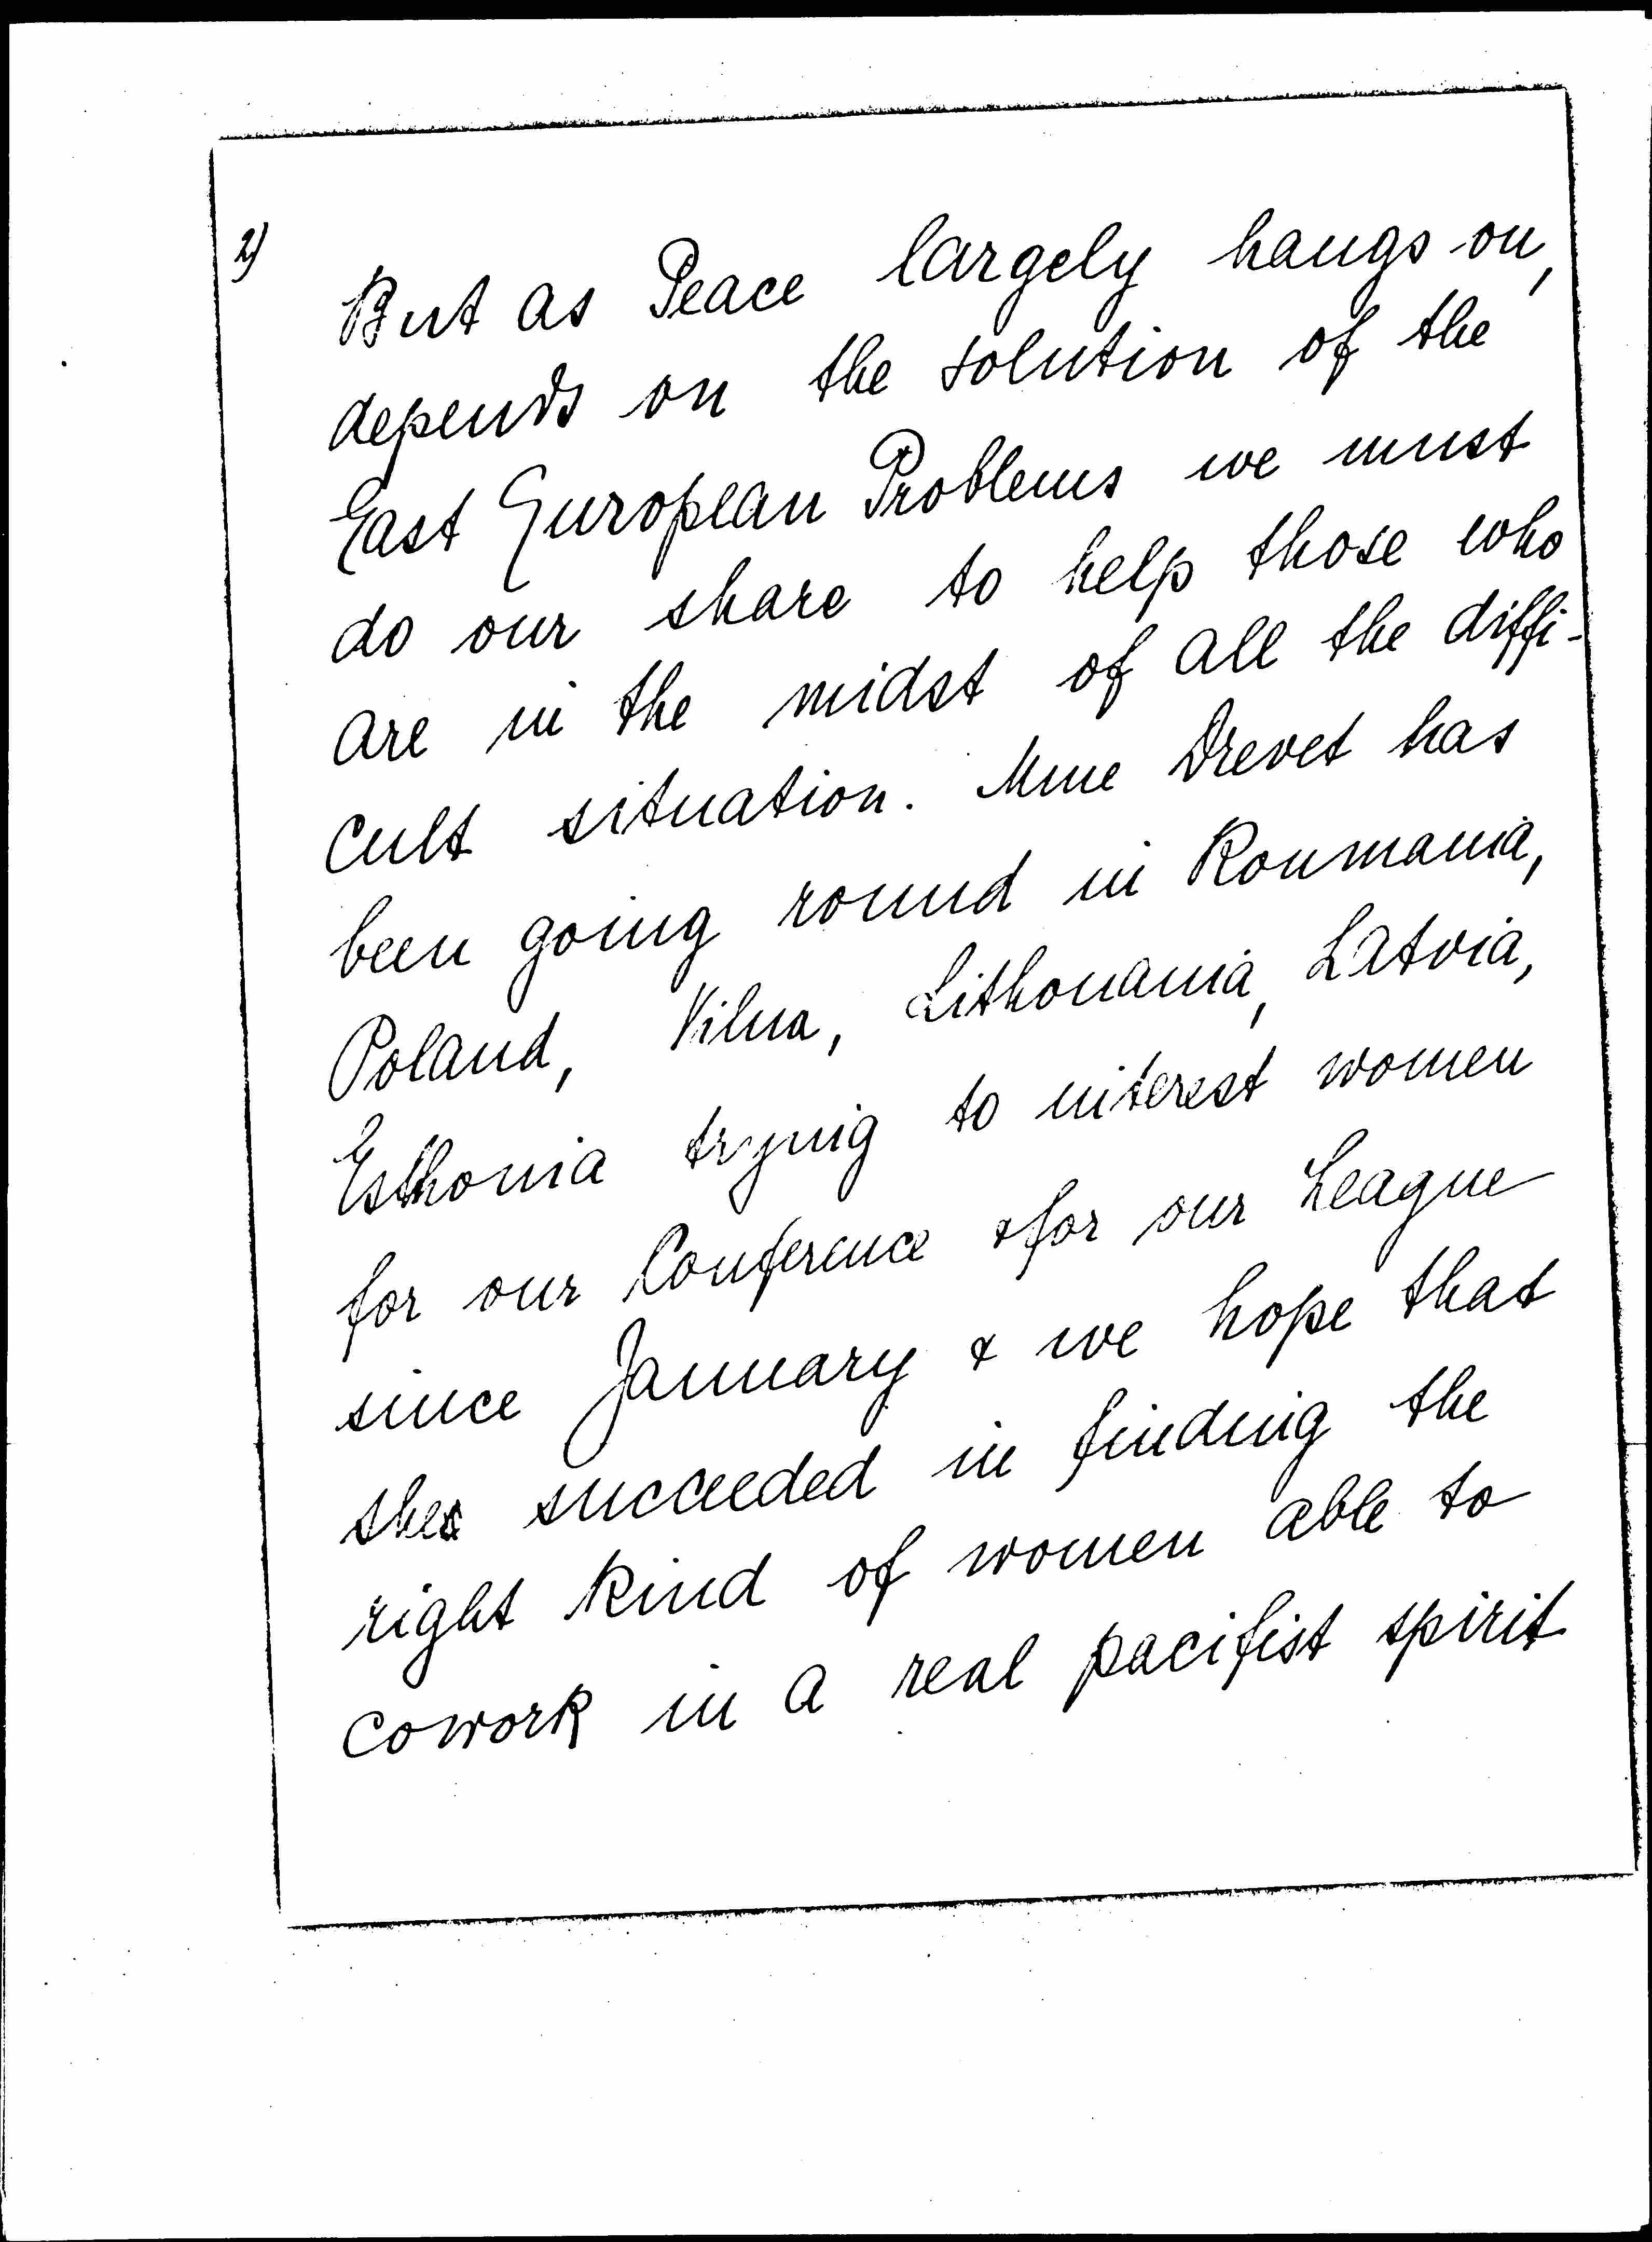 2)
But as Peace largely hangs on,
depends on the solution of the
East European Problems we must
do our share to help those who
are in the midst of all the diffi-
cult situation. Mme Drevet has
been going round in Roumania,
Poland, Vilna, Lithouania, Latvia,
Esthonia trying to interest women
for our Conference & for our League
since January & we hope that
she succeeded in finding the
right kind of women able to
cowork in a real pacifist spirit